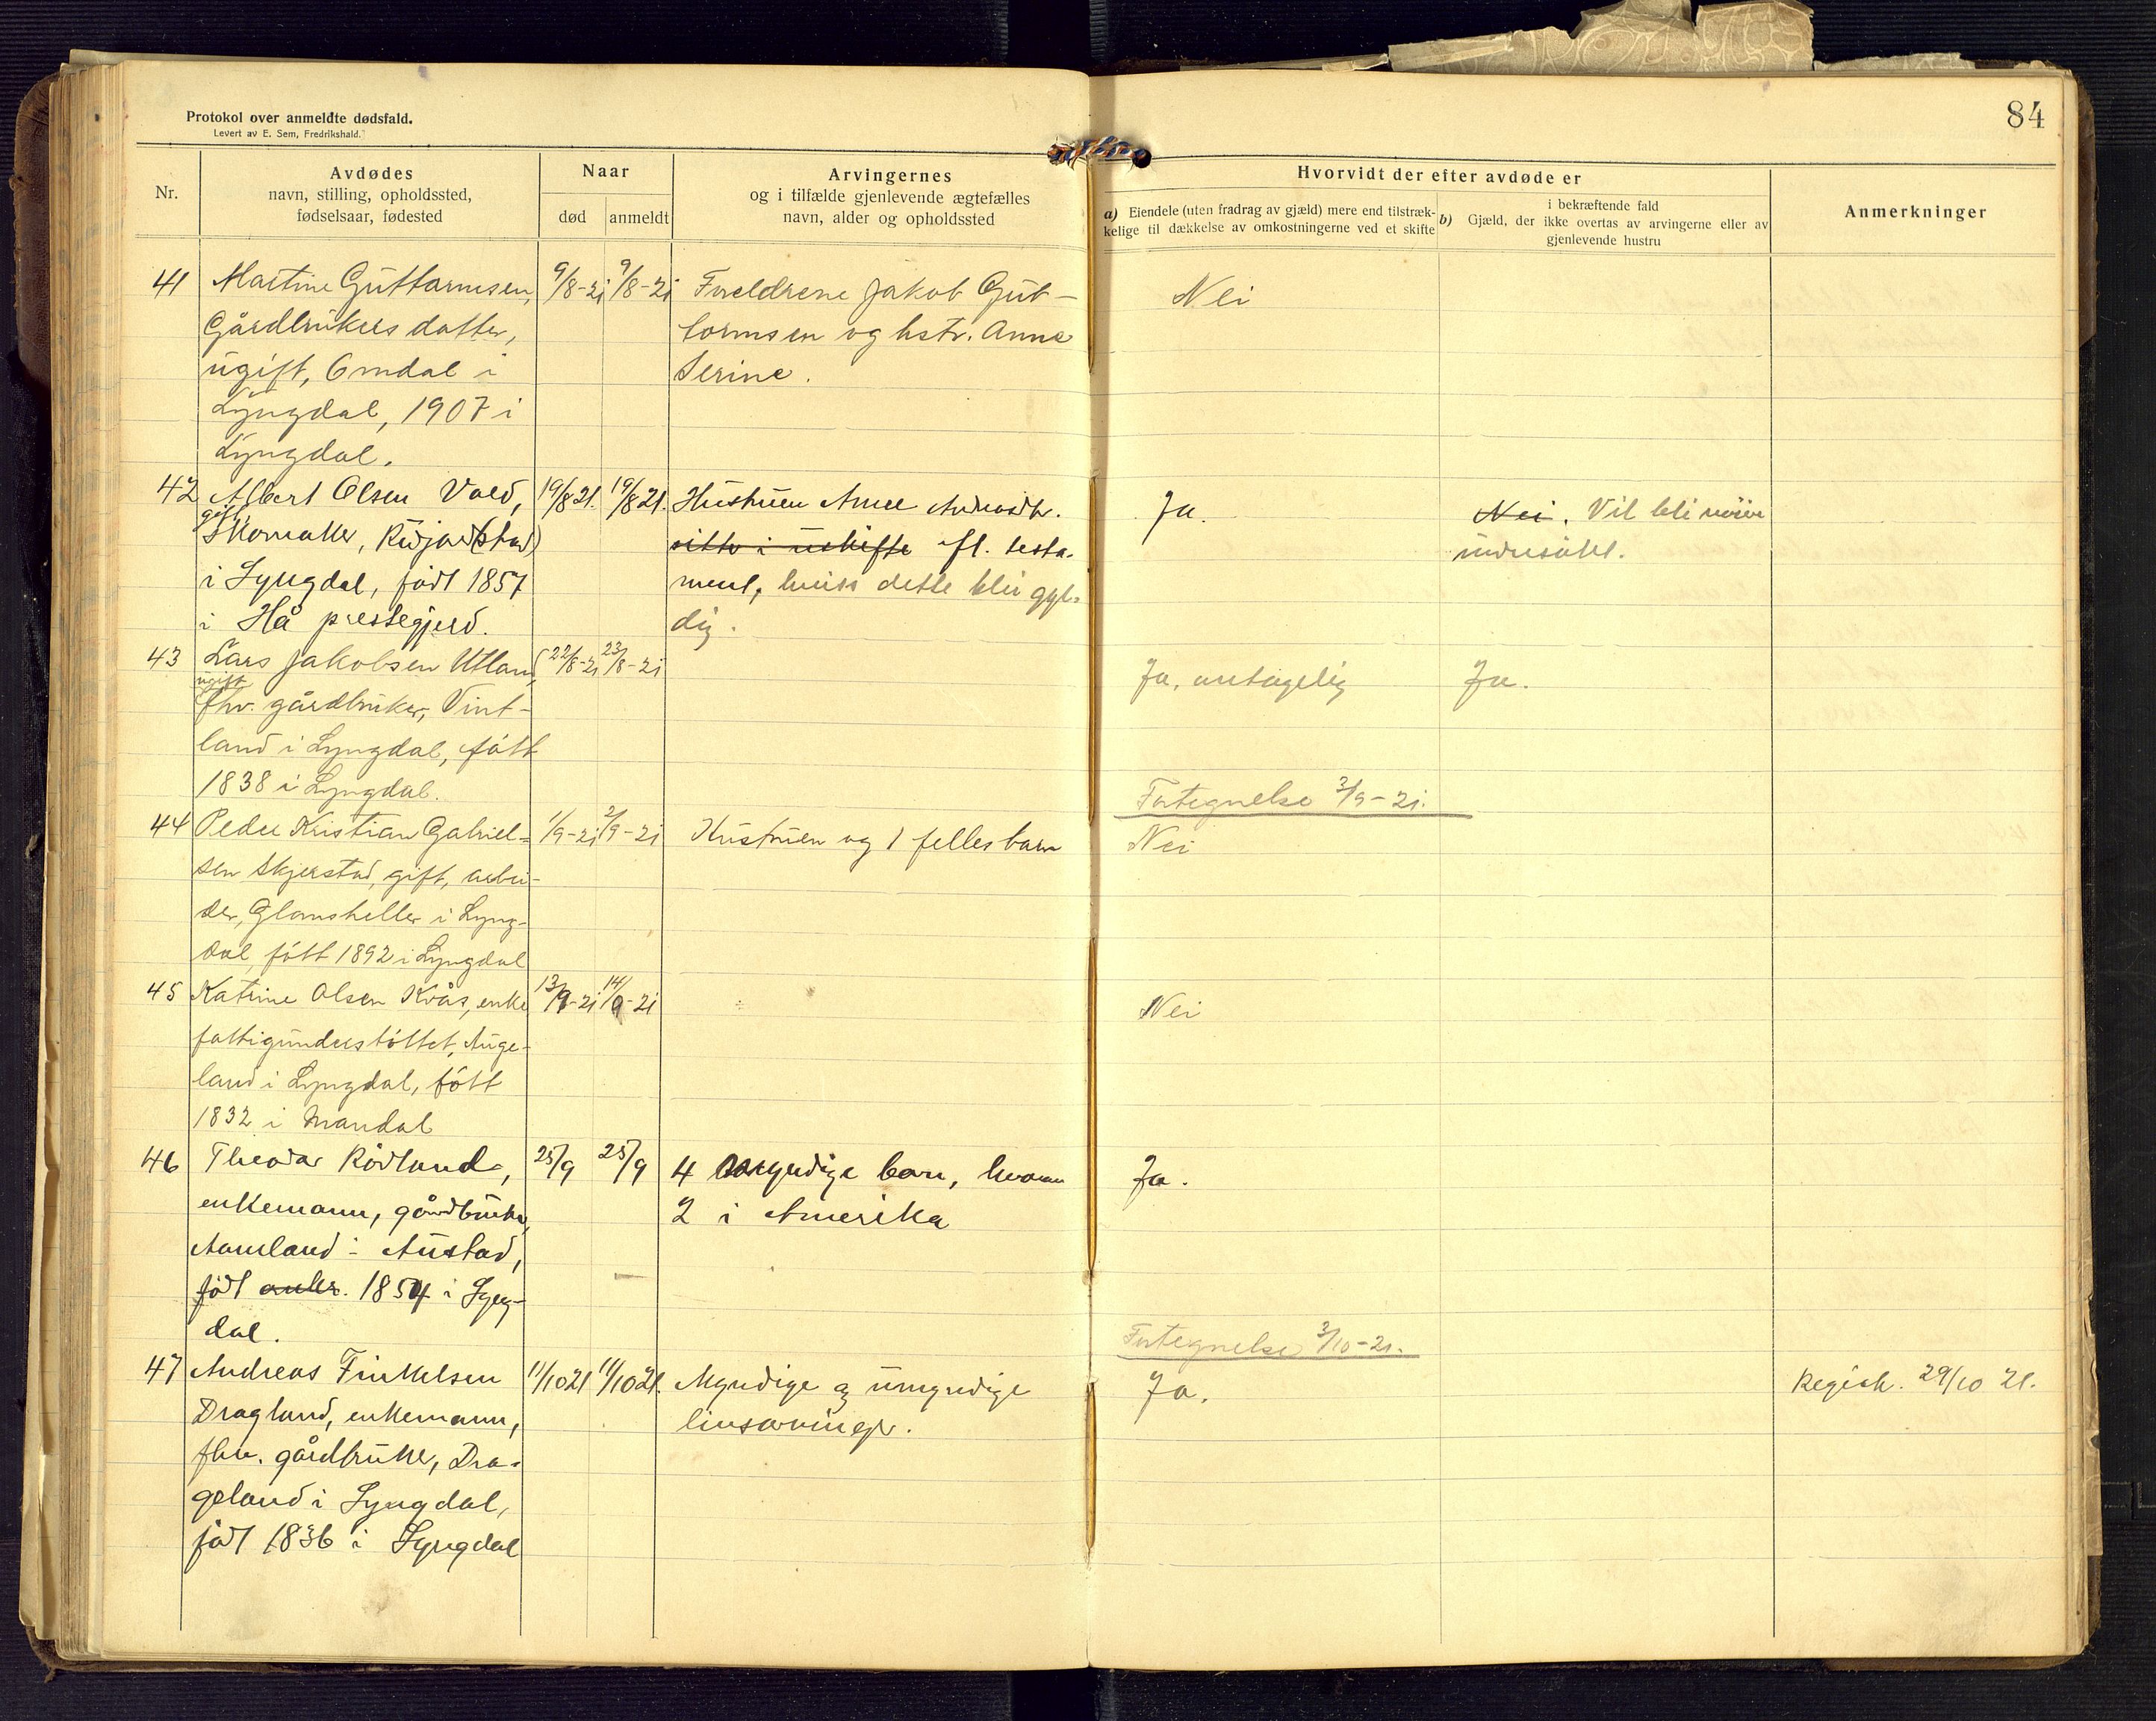 Protokol over anmeldte dødsfald.
Levert av E. Sem, Fredrikshald.
84
Nr.
Avdødes
navn, stilling, opholdssted,
fødselsaar, fødested
Naar
død
anmeldt
Arvingernes
og i tilfælde gjenlevende ægtefælles
navn, alder og opholdssted
Hvorvidt der efter avdøde er
a) Eiendele (uten fradrag av gjæld) mere end tilstræk-
kelige til dækkelse av omkostningerne ved et skifte
b)
i bekræftende fald
Gjæld, der ikke overtas av arvingerne eller av
gjenlevende hustru
Anmerkninger
41 Martine Guttormsen, 9/8-21 9/8-21 Foreldrene Jakob Gut- Nei
Gårdbrukers datter, tormsen og hstr. Anne
ugift, Omdal i Serine.
Lyngdal, 1907 i
Lyngdal.
42 Albert Olsen Voll, 19/8 21. 19/8 21. Hustruen Anne Ja. Nei. Vil bli nöiere
gift,
Skomaker, i sitte i uskifte fl. testa- undersökt.
i Lyngdal, födt 1857 ment, hvis dette blir gyl-
i Hå prestegjeld. dig.
43 Lars Jakobsen Utland, 22/8-21 23/8-21 Ja, antagelig Ja.
ugift
fhv. gårdbruker, Vint-
land i Lyngdal, fött
1838 i Lyngdal. Fortegnelse 3/9-21.
44 Peder Kristian Gabriel- 1/9-21 2/9-21 Hustruen og 1 felles barn Nei
sen Skjerstad, gift, arbei-
der, Glomsheller i Lyng-
dal, fött 1892 i Lyngdal
45 Katrine Olsen Kvås, enke 13/9-21 14/9-21 Nei
fattigunderstöttet, Auge-
land i Lyngdal, fött
1832 i Mandal
46 Theodor Rödland, 25/9 25/9 4 myndige barn, hvorav Ja.
enkemann, gårdbruker, 2 i Amerika
Aamland i Austad,
födt 1854 i Lyng-
dal. Fortegnelse 3/10-21.
47 Andreas Finkelsen 11/10 21 11/10 21. Myndige og umyndige Ja. Regist. 29/10 21.
Dragland, enkemann, livsarvinger.
fhv. gårdbruker, Dra-
geland i Lyngdal,
födt 1836 i Lyngdal